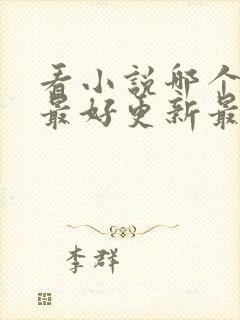 看小説哪个
最好更新最
李群